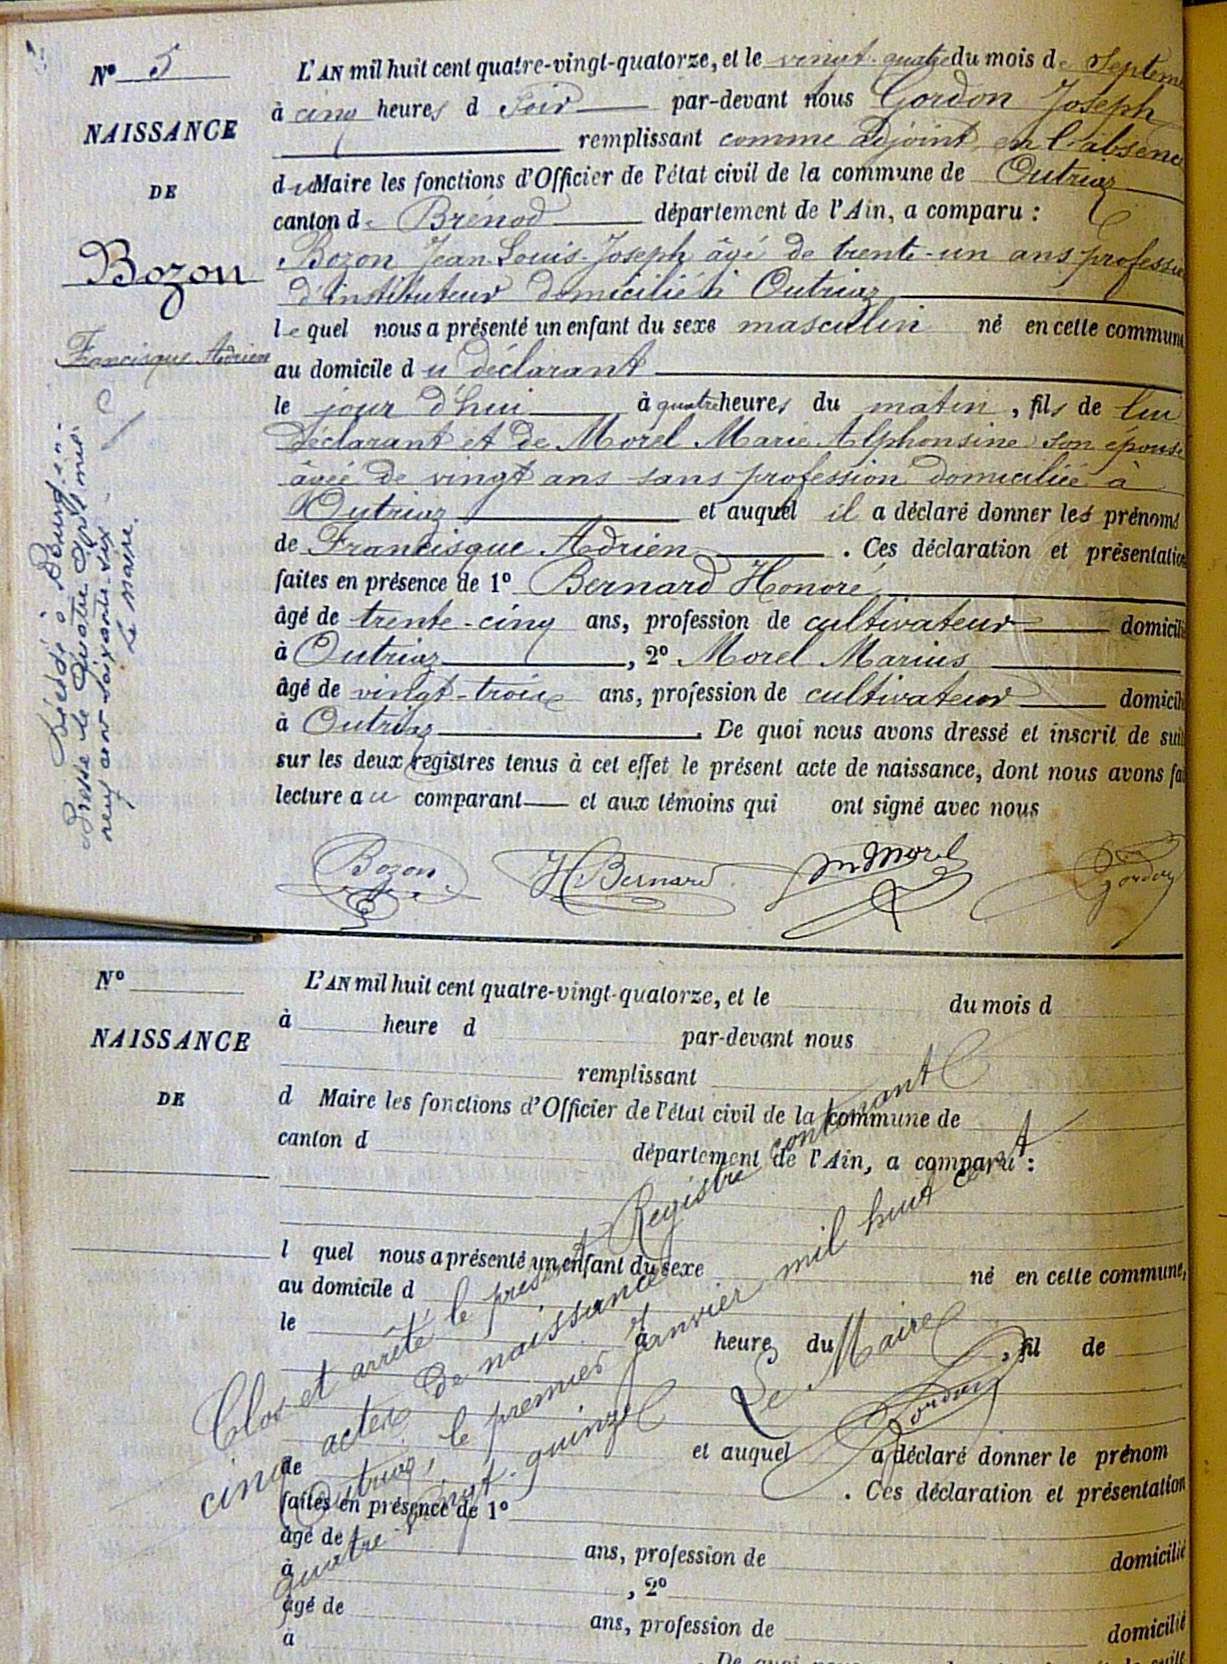 N° 5
NAISSANCE
DE
Bozon
Francisque Adrien
Décédé à Bourg-en-
Bresse le quatre
neuf cent soixante-six
Le Maire.
L'AN mil huit cent quatre-vingt-quatorze, et le vingt-quatre du mois de Septem
à cinq heures d soir par-devant nous Gordon Joseph
remplissant comme adjoint en l'absence
du Maire les fonctions d'Officier de l'état civil de la commune de Outriaz
canton de Brénod département de l'Ain, a comparu :
Bozon Jean Louis-Joseph âgé de trente-un ans profession
d'instituteur domicilié à Outriaz
lequel nous a présenté un enfant du sexe masculin né en cette commune
au domicile du déclarant
le jour d'hui à quatre heures du matin, fils de lui
déclarant et de Morel Marie Alphonsine son épouse
âgée de vingt ans sans profession domiciliée à
Outriaz et auquel il a déclaré donner les prénoms
de Francisque Adrien . Ces déclaration et présentation
faites en présence de 1° Bernard Honoré
âgé de trente-cinq ans, profession de cultivateur domicilié
à Outriaz, 2° Morel Marius
âgé de vingt-trois ans, profession de cultivateur domicili
à Outriaz. De quoi nous avons dressé et inscrit de suit
sur les deux registres tenus à cet effet le présent acte de naissance, dont nous avons fai
lecture au comparant et aux témoins qui ont signé avec nous
Bozon H Bernard M Morel Gordon
N°
NAISSANCE
DE
L'AN mil huit cent quatre-vingt-quatorze, et le du mois d
à heure d par-devant nous
remplissant
d Maire les fonctions d'Officier de l'état civil de la commune de
canton d département de l'Ain, a comparu :
l quel nous a présenté un enfant du sexe né en cette commune,
au domicile d
le à heure du , fil de
et auquel a déclaré donner le prénom
de . Ces déclaration et présentation
faites en présence de 1°
âgé de ans, profession de domicilié
à , 2°
âgé de ans, profession de domicilié
à
De quoi nous
Clos et arrêté le présent Registre contenant
cinq actes de naissance
Outriaz, le premier Janvier mil huit cent
quatre-vingt-quinze
Le Maire
Gordon